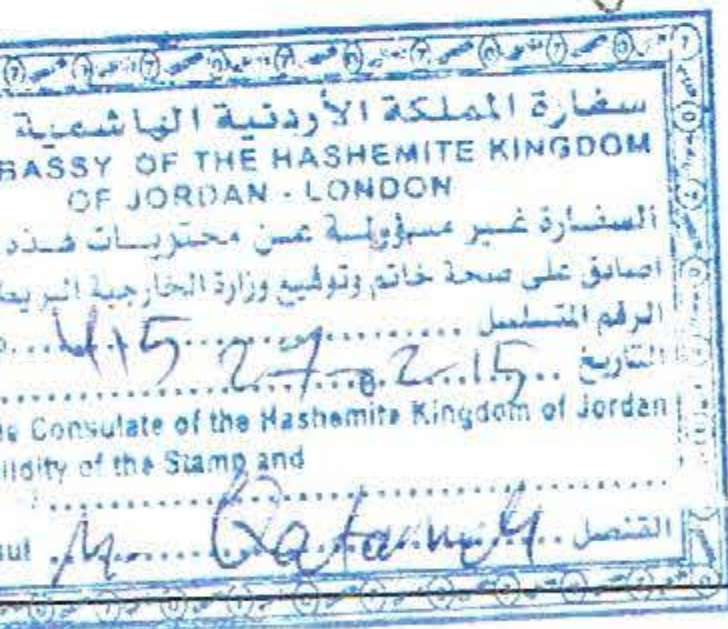 سفارة المملكة الأردنية الهاشمية
BASSY OF THE HASHEMITE KINGDOM
OF JORDAN - LONDON
السفارة غير مسؤولة عن محتويات هذه
اصادق على صحة خاتم وتوقيع وزارة الخارجية البريط
الرقم المتسلسل
التاريخ 27-2-15
Consulate of the Hashemite Kingdom of Jordan
lidity of the Stamp and
القنصل